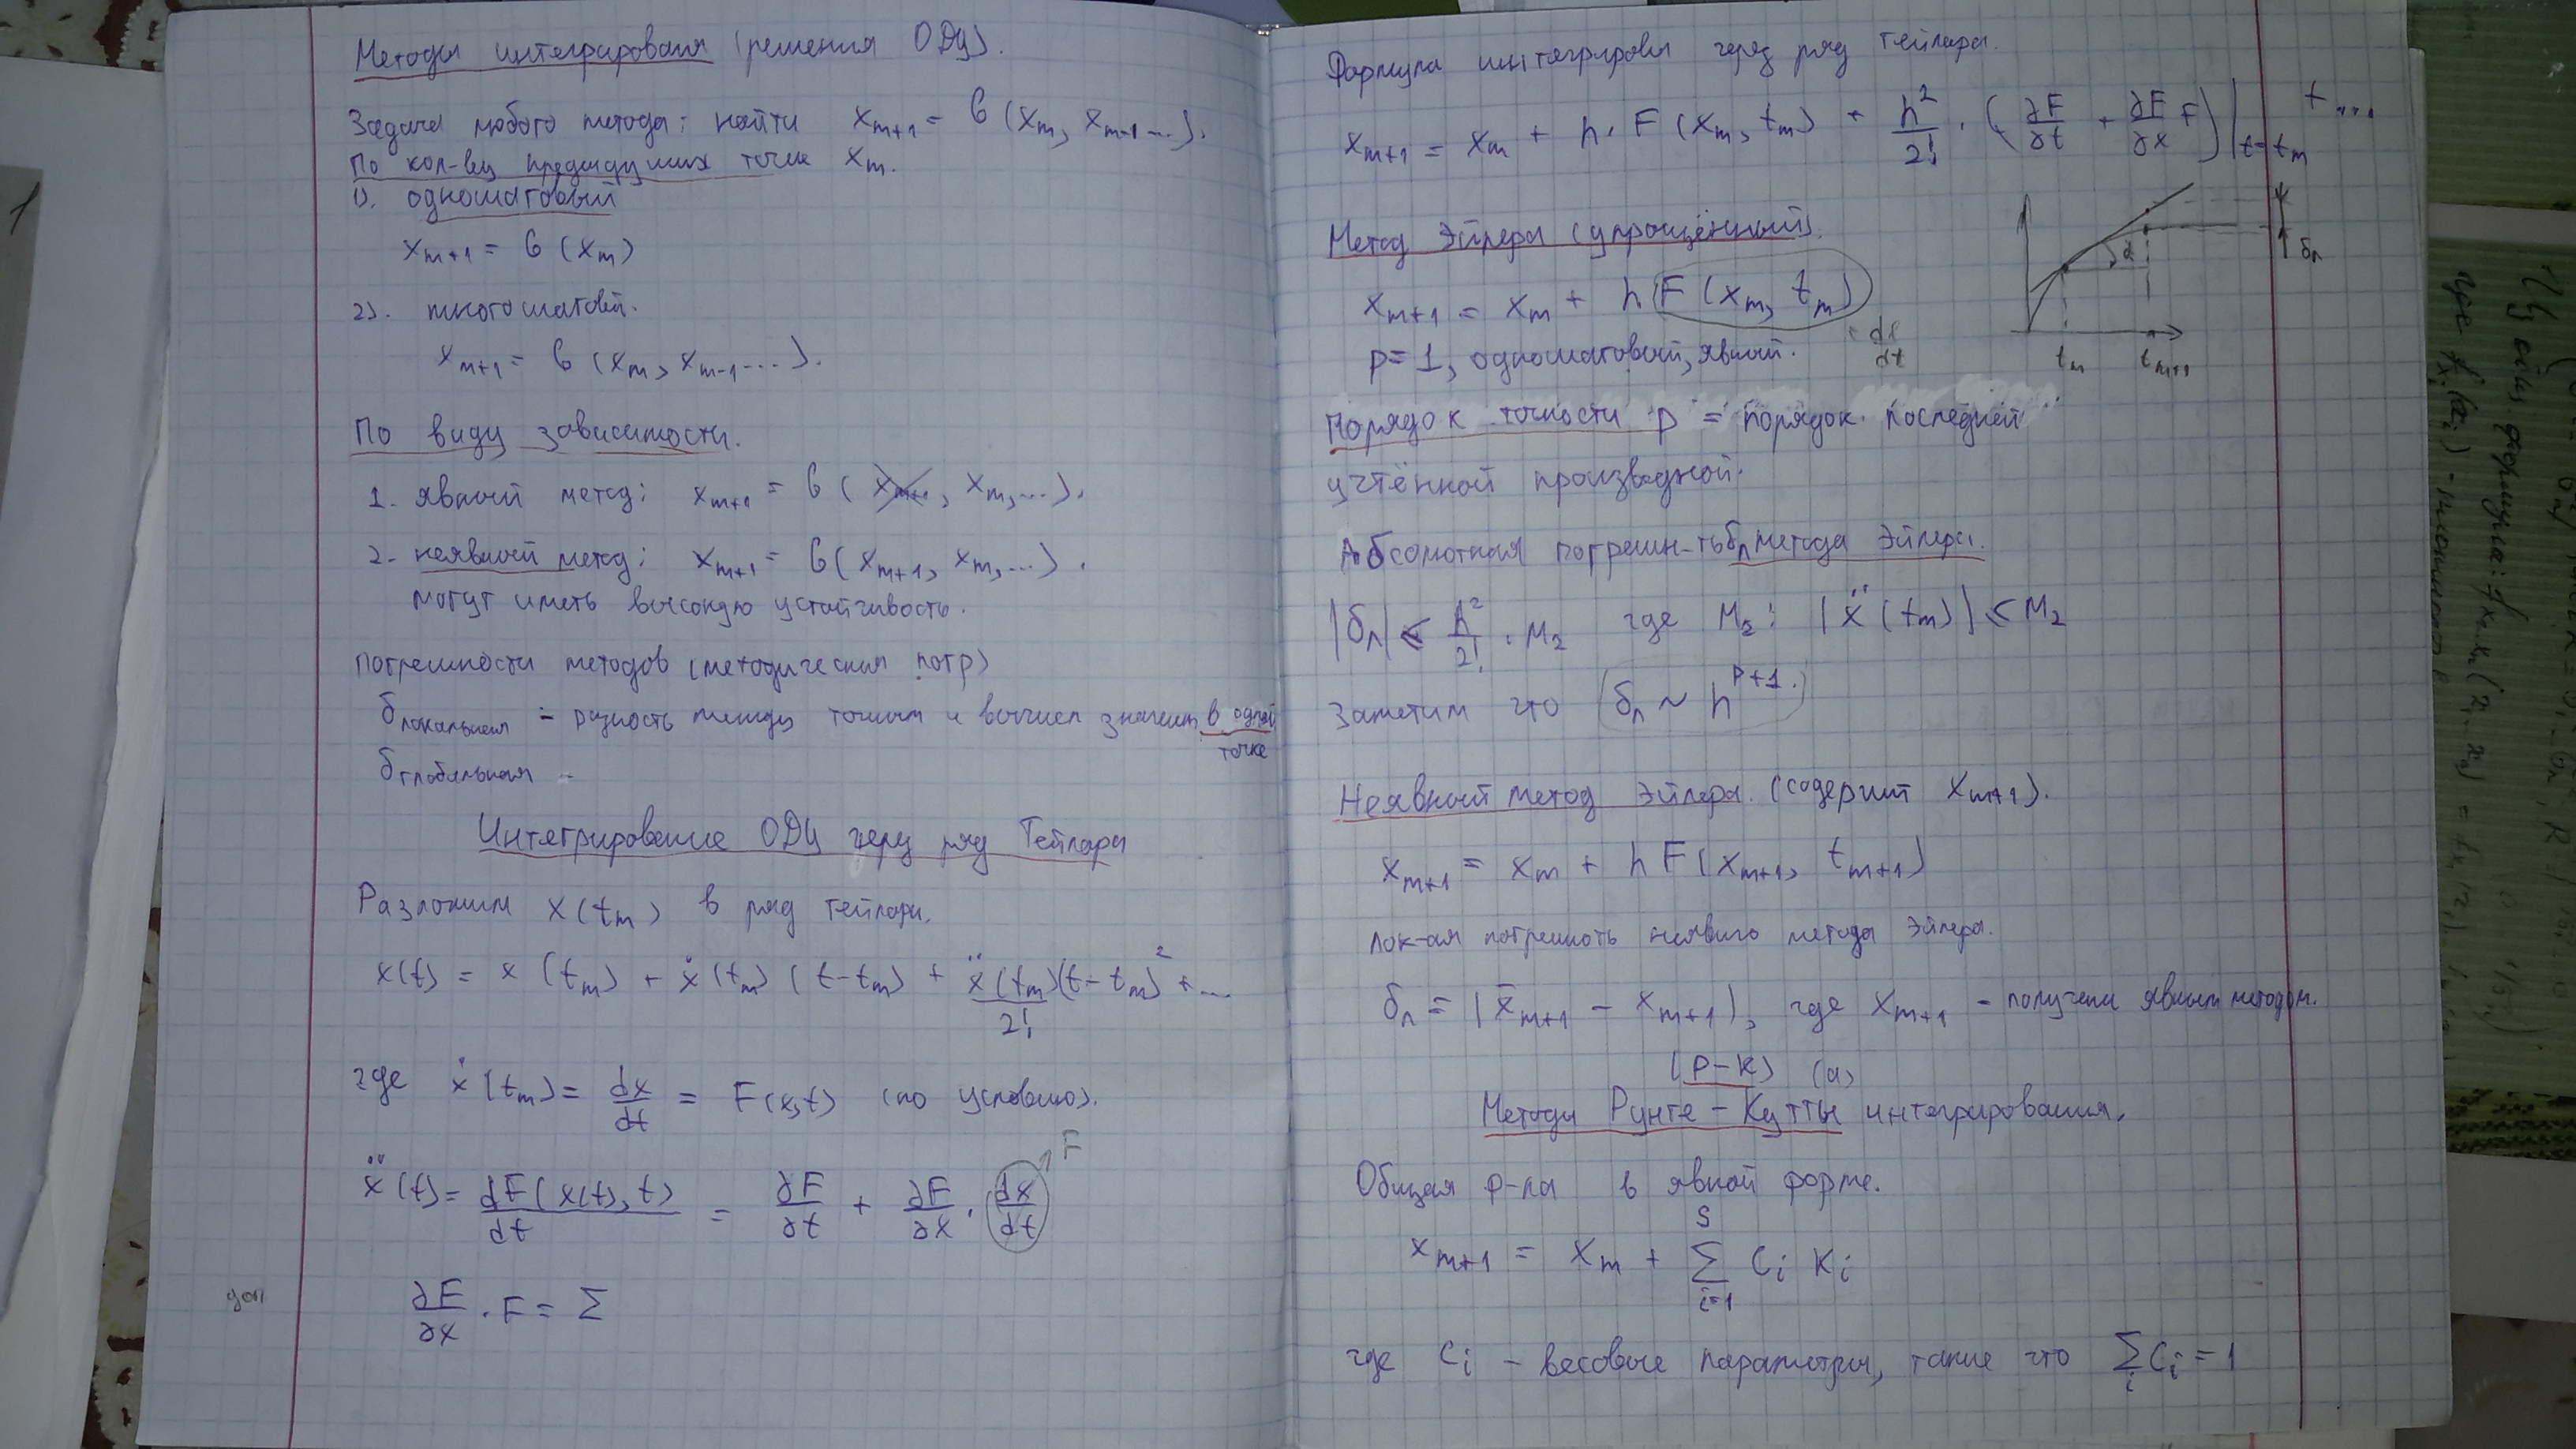 Методы интегрирования (решения ОДУ).
Задача любого метода: найти x_{m+1} = б (x_m, x_{m-1} ...).
По кол-ву предыдущих точек x_m.
1). одношаговый
x_{m+1} = б (x_m)
2). многошаговый.
x_{m+1} = б (x_m, x_{m-1} ...).
По виду зависимости.
1. явный метод: x_{m+1} = б (x_{m+1}, x_m, ...).
2- неявный метод: x_{m+1} = б (x_{m+1}, x_m, ...).
могут иметь высокую устойчивость.
погрешности методов (методическая погр)
δ локальная - разность между точным и вычисл значением в одной
точке
δ глобальная -
Интегрирование ОДУ через ряд Тейлора
Разложим x(t_m) в ряд Тейлора.
x(t) = x (t_m) + ẋ (t_m) (t-t_m) + ẍ(t_m)/2! (t-t_m)^2 + ...
где ẋ (t_m) = dx/dt = F(x,t) (по условию).
F
ẍ (t) = dF(x(t), t)/dt = ∂F/∂t + ∂F/∂x · dx/dt
доп
∂F/∂x · F = Σ
Формула интегрировы через ряд Тейлора.
x_{m+1} = x_m + h · F (x_m, t_m) + h^2/2! · (∂F/∂t + ∂F/∂x F)|_{t=t_m} + ...
Метод Эйлера (упрощённый).
x_{m+1} = x_m + h F (x_m, t_m)
= dx/dt
p = 1, одношаговый, явный.
α
δл
t_m t_{m+1}
Порядок точности p = порядок последней
учтённой производной.
Абсолютная погрешн-ть δл метода Эйлера.
|δл| ≤ h^2/2! · M_2 где M_2: |ẍ (t_m)| ≤ M_2
Заметим что (δл ~ h^{p+1}.)
Неявный метод Эйлера. (содержит x_{m+1}).
x_{m+1} = x_m + h F (x_{m+1}, t_{m+1})
лок-ая погрешность неявного метода Эйлера.
δл = |x̄_{m+1} - x_{m+1}|, где x_{m+1} - получена явным методом.
(Р-К) (a)
Методы Рунге - Кутты интегрирования.
Общая ф-ла в явной форме.
x_{m+1} = x_m + Σ_{i=1}^{s} C_i K_i
где C_i - весовые параметры, такие что Σ_i C_i = 1
1